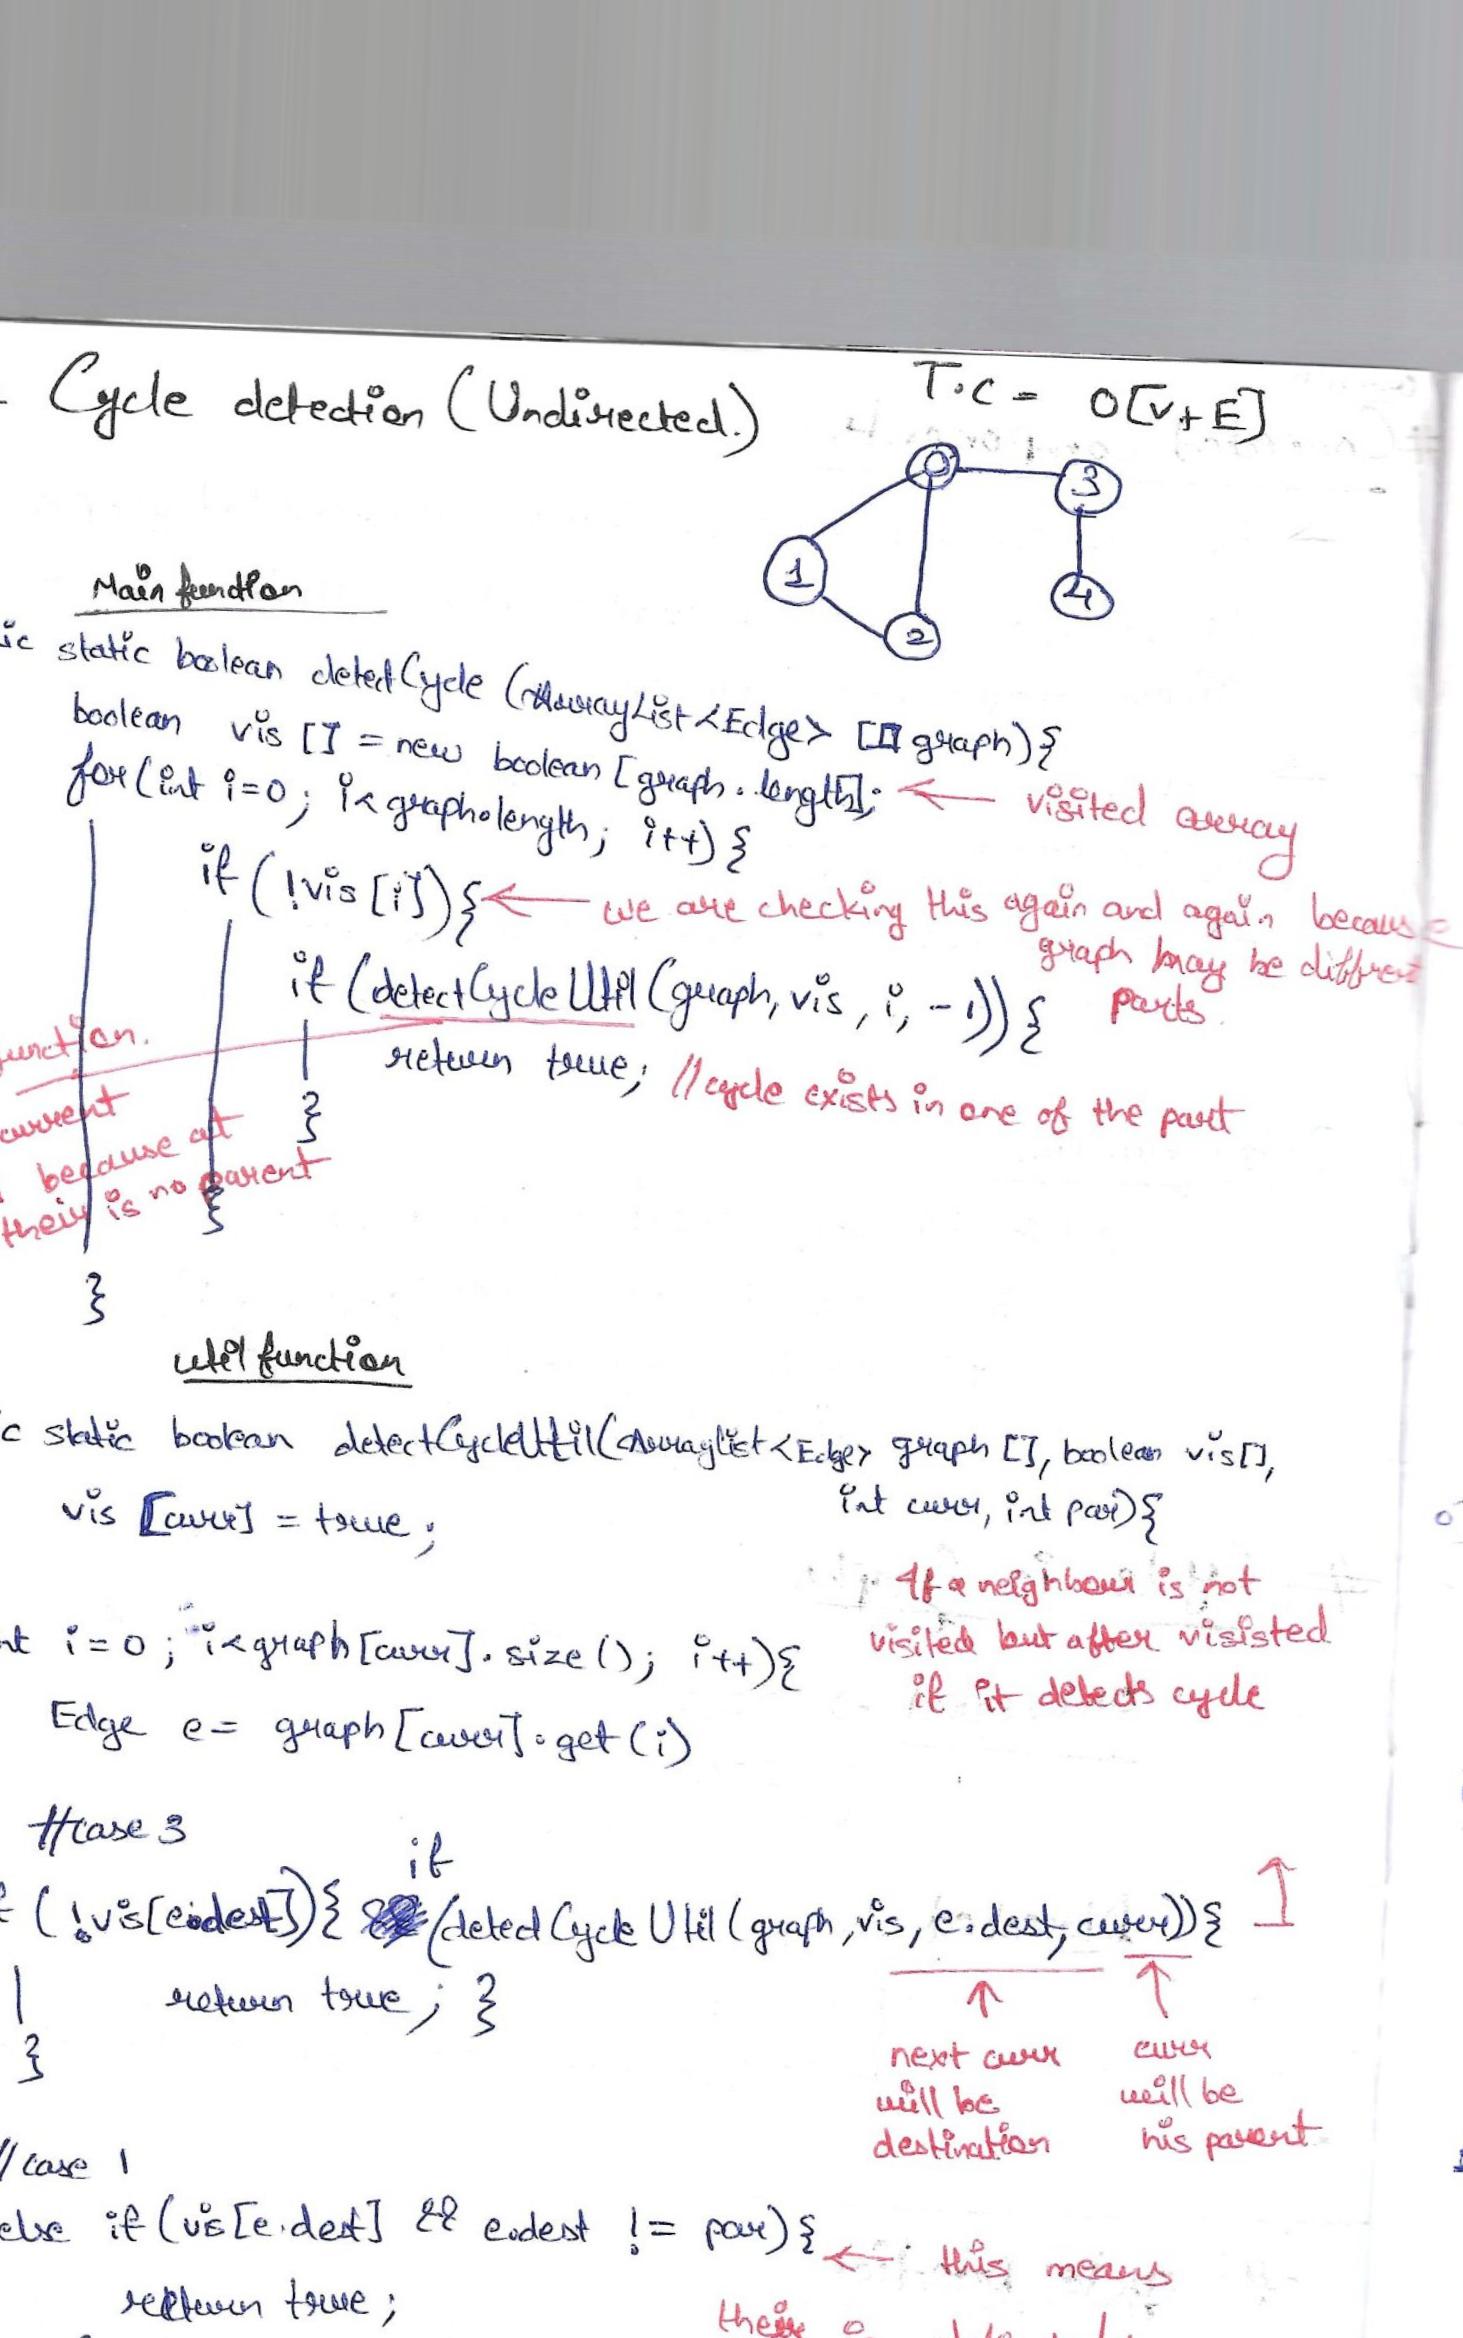 Cycle detection (Undirected.)
T.C = O[V+E]
0
3
1
4
2
Main function
ic static boolean detectCycle (ArrayList<Edge> [] graph){
boolean vis [] = new boolean [graph.length]; ← visited array
for(int i=0; i<graph.length; i++) {
if (!vis [i]){ ← we are checking this again and again because
graph may be diffrent
parts.
if (detectCycleUtil (graph, vis, i, -1)) {
return true; //cycle exists in one of the part
}
unction.
current
because at
their is no parent
}
}
util function
c static boolean detectCycleUtil(Arraylist<Edge> graph [], boolean vis[],
int curr, int par){
vis [curr] = true;
If a neighbour is not
visited but after visisted
if it detects cycle
nt i=0; i<graph[curr].size(); i++){
Edge e= graph[curr].get(i)
//case 3
(!vis[e.dest]){ if (detectCycleUtil (graph, vis, e.dest, curr)){
return true; }
}
next curr
will be
destination
curr
will be
his parent
//case 1
else if (vis[e.dest] && e.dest != par){ ← this means
return true;